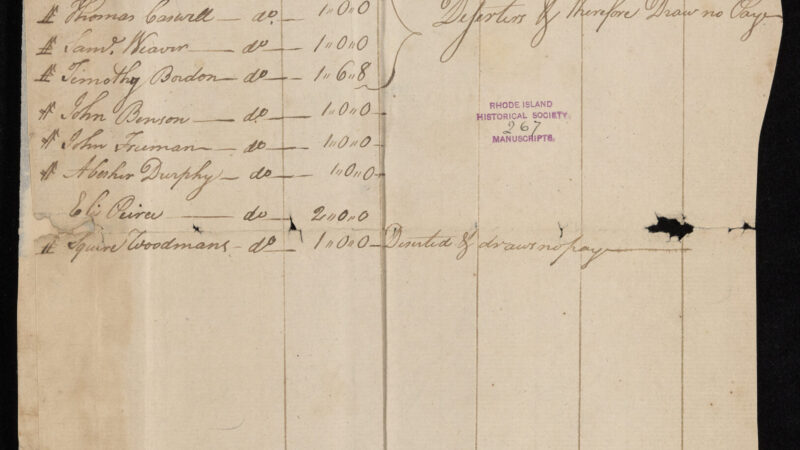 Thomas Caswell — do. — 1"0"0 Deserters & therefore Draw no Pay
Saml. Weaver — do — 1"0"0
Timothy Bordon — do — 1"6"8
John Benson — do — 1"0"0
John Truman — do — 1"0"0
Abesher Durphy — do — 1"0"0
Eli Peirce — do — 2"0"0
Squire Woodmans — do — 1"0"0 — Deserted & draws no pay
RHODE ISLAND
HISTORICAL SOCIETY.
267
MANUSCRIPTS.